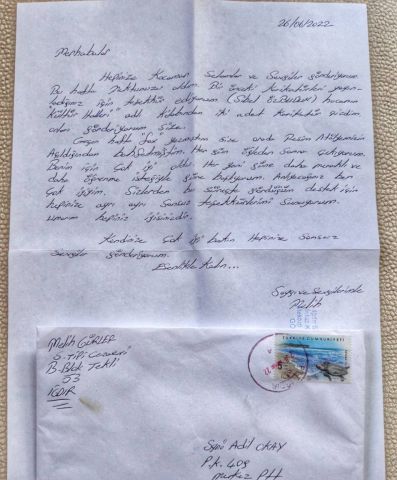 26/06/2022
Merhabalar
Hepinize Kocaman Selamlar ve Sevgiler gönderiyorum.
Bu hafta Mektubunuzu aldım. Bir önceki karikatürleri
için teşekkür ediyorum (Sibel ÖZBUDUN) hocanın
Kültür Halleri" adlı kitabından iki adet karikatür çizdim.
onları gönderiyorum size.
Geçen hafta yazmıştım size orada Resim Atölyemizin
Açıldığından bahsetmiştim. Her gün öğleden sonra çıkıyorum.
Benim için çok iyi oldu. Her yeni güne daha meraklı ve
daha öğrenme isteğiyle güne başlıyorum. Anlayacağınız ben
Çok iyiyim. Sizlerden bu süreçte gördüğüm destek için
hepinize ayrı ayrı Sonsuz teşekkürlerimi Sunuyorum.
umarım hepiniz iyisinizdir.
Kendinize Çok iyi bakın Hepinize Sonsuz
Sevgiler gönderiyorum.
Esenlikle Kalın...
Saygı ve Sevgilerimle
Melih
Melih GÜRLER
S-Tipi Cezaevi
B-Blok Tekli
53
IĞDIR
TÜRKİYE CUMHURİYETİ
Adil OKAY
P.K. 409
Merkez PTT